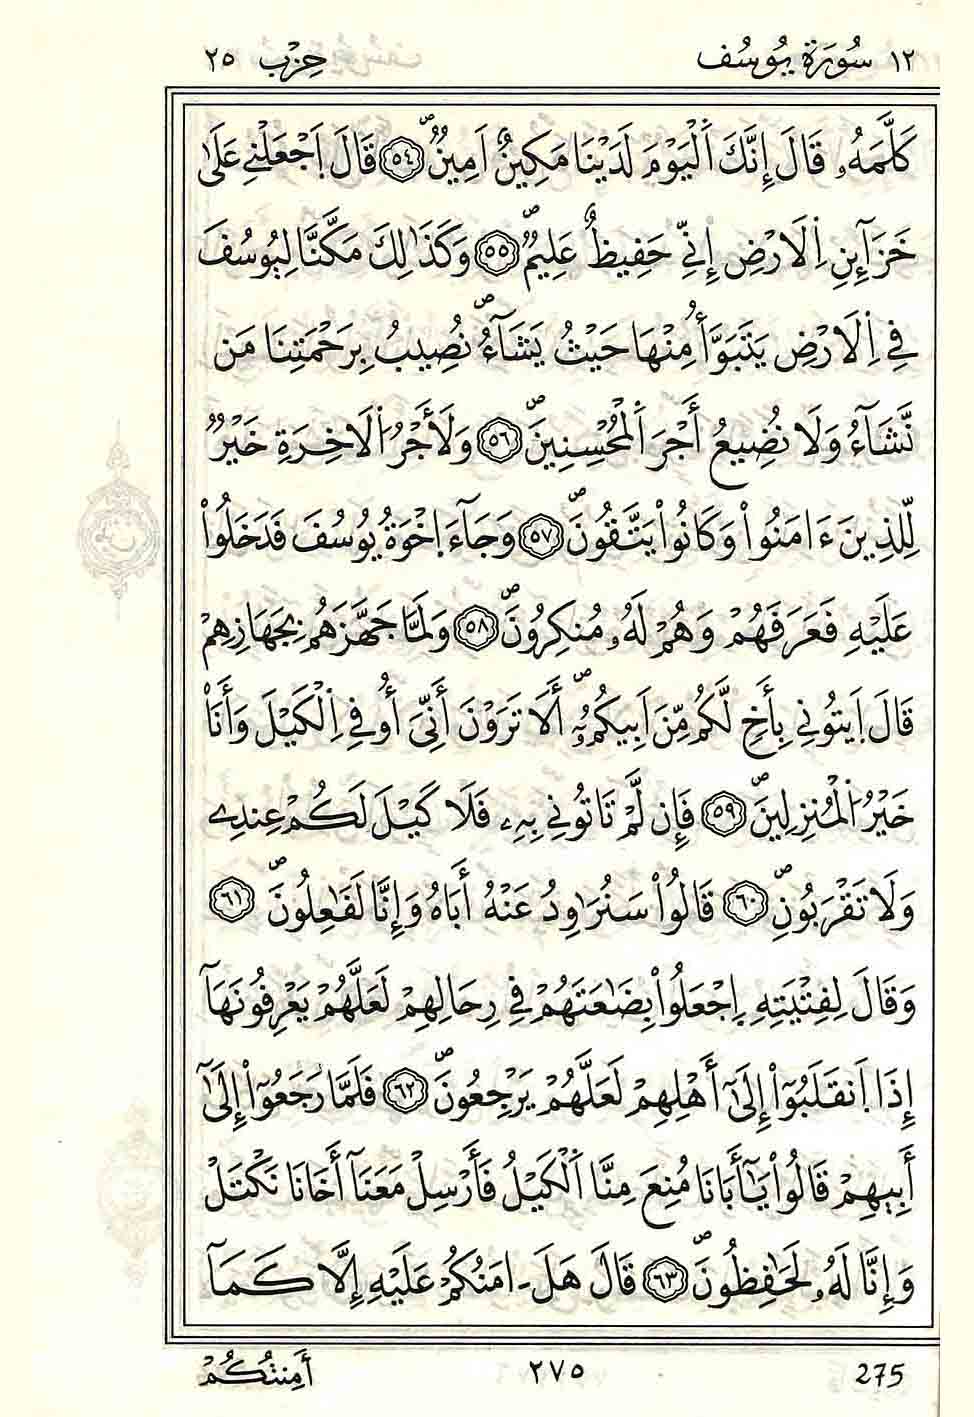 ١٢ سُورَةُ يُوسُف حِزْب ٢٥
كَلَّمَهُۥ قَالَ إِنَّكَ اَ۬لْيَوْمَ لَدَيْنَا مَكِينٌ أَمِينٌۖ ٥٤ قَالَ اَ۪جْعَلْنِے عَلَىٰ
خَزَآئِنِ اِ۬لَارْضِ إِنِّے حَفِيظٌ عَلِيمٌۖ ٥٥ وَكَذَٰلِكَ مَكَّنَّا لِيُوسُفَ
فِے اِ۬لَارْضِ يَتَبَوَّأُ مِنْهَا حَيْثُ يَشَآءُۖ نُصِيبُ بِرَحْمَتِنَا مَن
نَّشَآءُ وَلَا نُضِيعُ أَجْرَ اَ۬لْمُحْسِنِينَۖ ٥٦ وَلَأَجْرُ اُ۬لَاخِرَةِ خَيْرٌ
لِّلذِينَ ءَامَنُواْ وَكَانُواْ يَتَّقُونَۖ ٥٧ وَجَآءَ اِخْوَةُ يُوسُفَ فَدَخَلُواْ
عَلَيْهِ فَعَرَفَهُمْ وَهُمْ لَهُۥ مُنكِرُونَۖ ٥٨ وَلَمَّا جَهَّزَهُم بِجَهَازِهِمْ
قَالَ اَ۪يتُونِے بِأَخٖ لَّكُم مِّنَ اَبِيكُمُۥٓۖ أَلَا تَرَوْنَ أَنِّيَ أُوفِے اِ۬لْكَيْلَ وَأَنَا
خَيْرُ اُ۬لْمُنزِلِينَۖ ٥٩ فَإِن لَّمْ تَاتُونِے بِهِۦ فَلَا كَيْلَ لَكُمْ عِندِے
وَلَا تَقْرَبُونِۖ ٦٠ قَالُواْ سَنُرَٰوِدُ عَنْهُ أَبَاهُ وَإِنَّا لَفَٰعِلُونَۖ ٦١
وَقَالَ لِفِتْيَتِهِ اِ۪جْعَلُواْ بِضَٰعَتَهُمْ فِے رِحَالِهِمْ لَعَلَّهُمْ يَعْرِفُونَهَآ
إِذَا اَ۪نقَلَبُوٓاْ إِلَىٰٓ أَهْلِهِمْ لَعَلَّهُمْ يَرْجِعُونَۖ ٦٢ فَلَمَّا رَجَعُوٓاْ إِلَىٰٓ
أَبِيهِمْ قَالُواْ يَٰٓأَبَانَا مُنِعَ مِنَّا اَ۬لْكَيْلُ فَأَرْسِلْ مَعَنَآ أَخَانَا نَكْتَلْ
وَإِنَّا لَهُۥ لَحَٰفِظُونَۖ ٦٣ قَالَ هَلَ اٰمَنُكُمْ عَلَيْهِ إِلَّا كَمَآ
275 ٢٧٥ أَمِنتُكُمْ